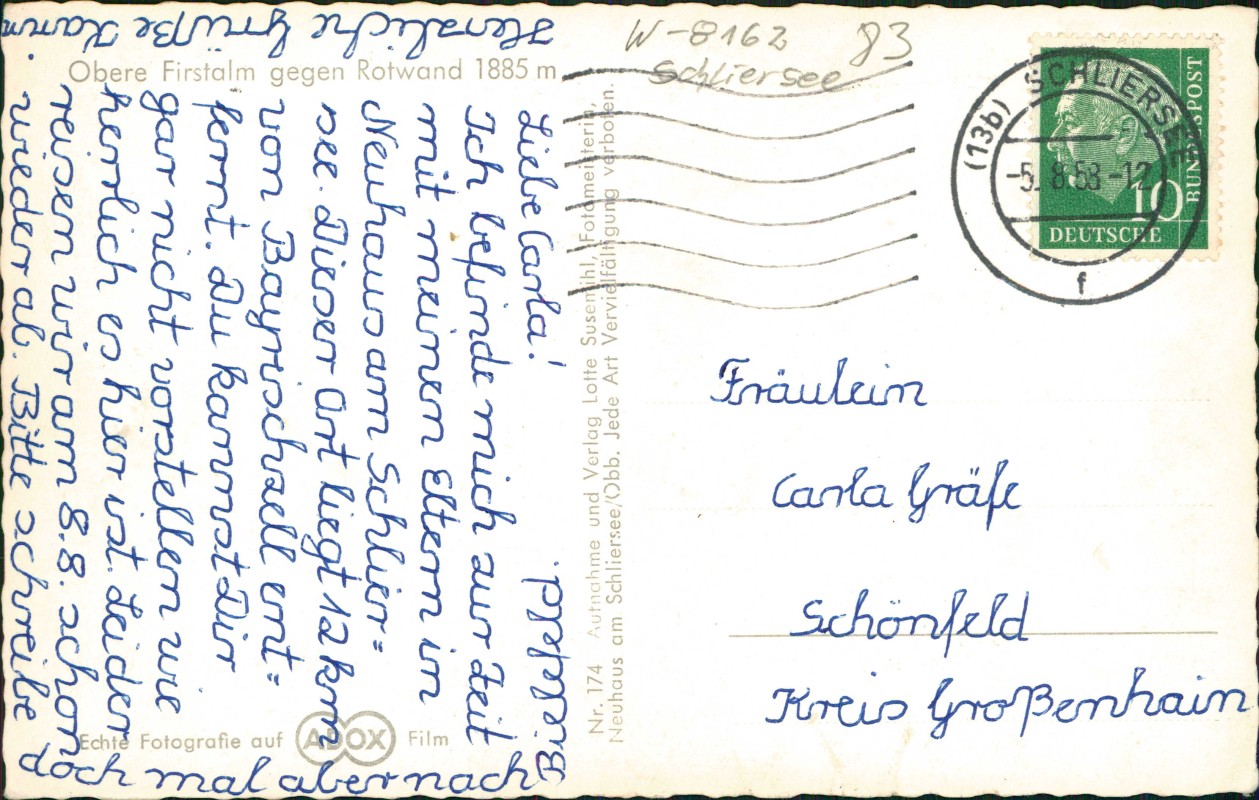 Obere Firstalm gegen Rotwand 1885 m
Liebe Carla!
Ich befinde mich zur Zeit
mit meinen Eltern in
Neuhaus am Schlier=
see. Dieser Ort liegt 12 km
von Bayrischzell ent=
fernt. Du kannst Dir
gar nicht vorstellen wie
herrlich es hier ist. Leider
reisen wir am 8.8. schon
wieder ab. Bitte schreibe
doch mal aber nach
Bielefeld.
Herzliche Grüße Karin
Echte Fotografie auf ADOX Film
Nr. 174 Aufnahme und Verlag Lotte Susemihl, Fotomeisterin,
Neuhaus am Schliersee/Obb. Jede Art Vervielfältigung verboten.
W-8162 83
Schliersee
(13b) SCHLIERSEE
-5.8.58-12
f
10
DEUTSCHE
BUNDESPOST
Fräulein
Carla Gräfe
Schönfeld
Kreis Großenhain